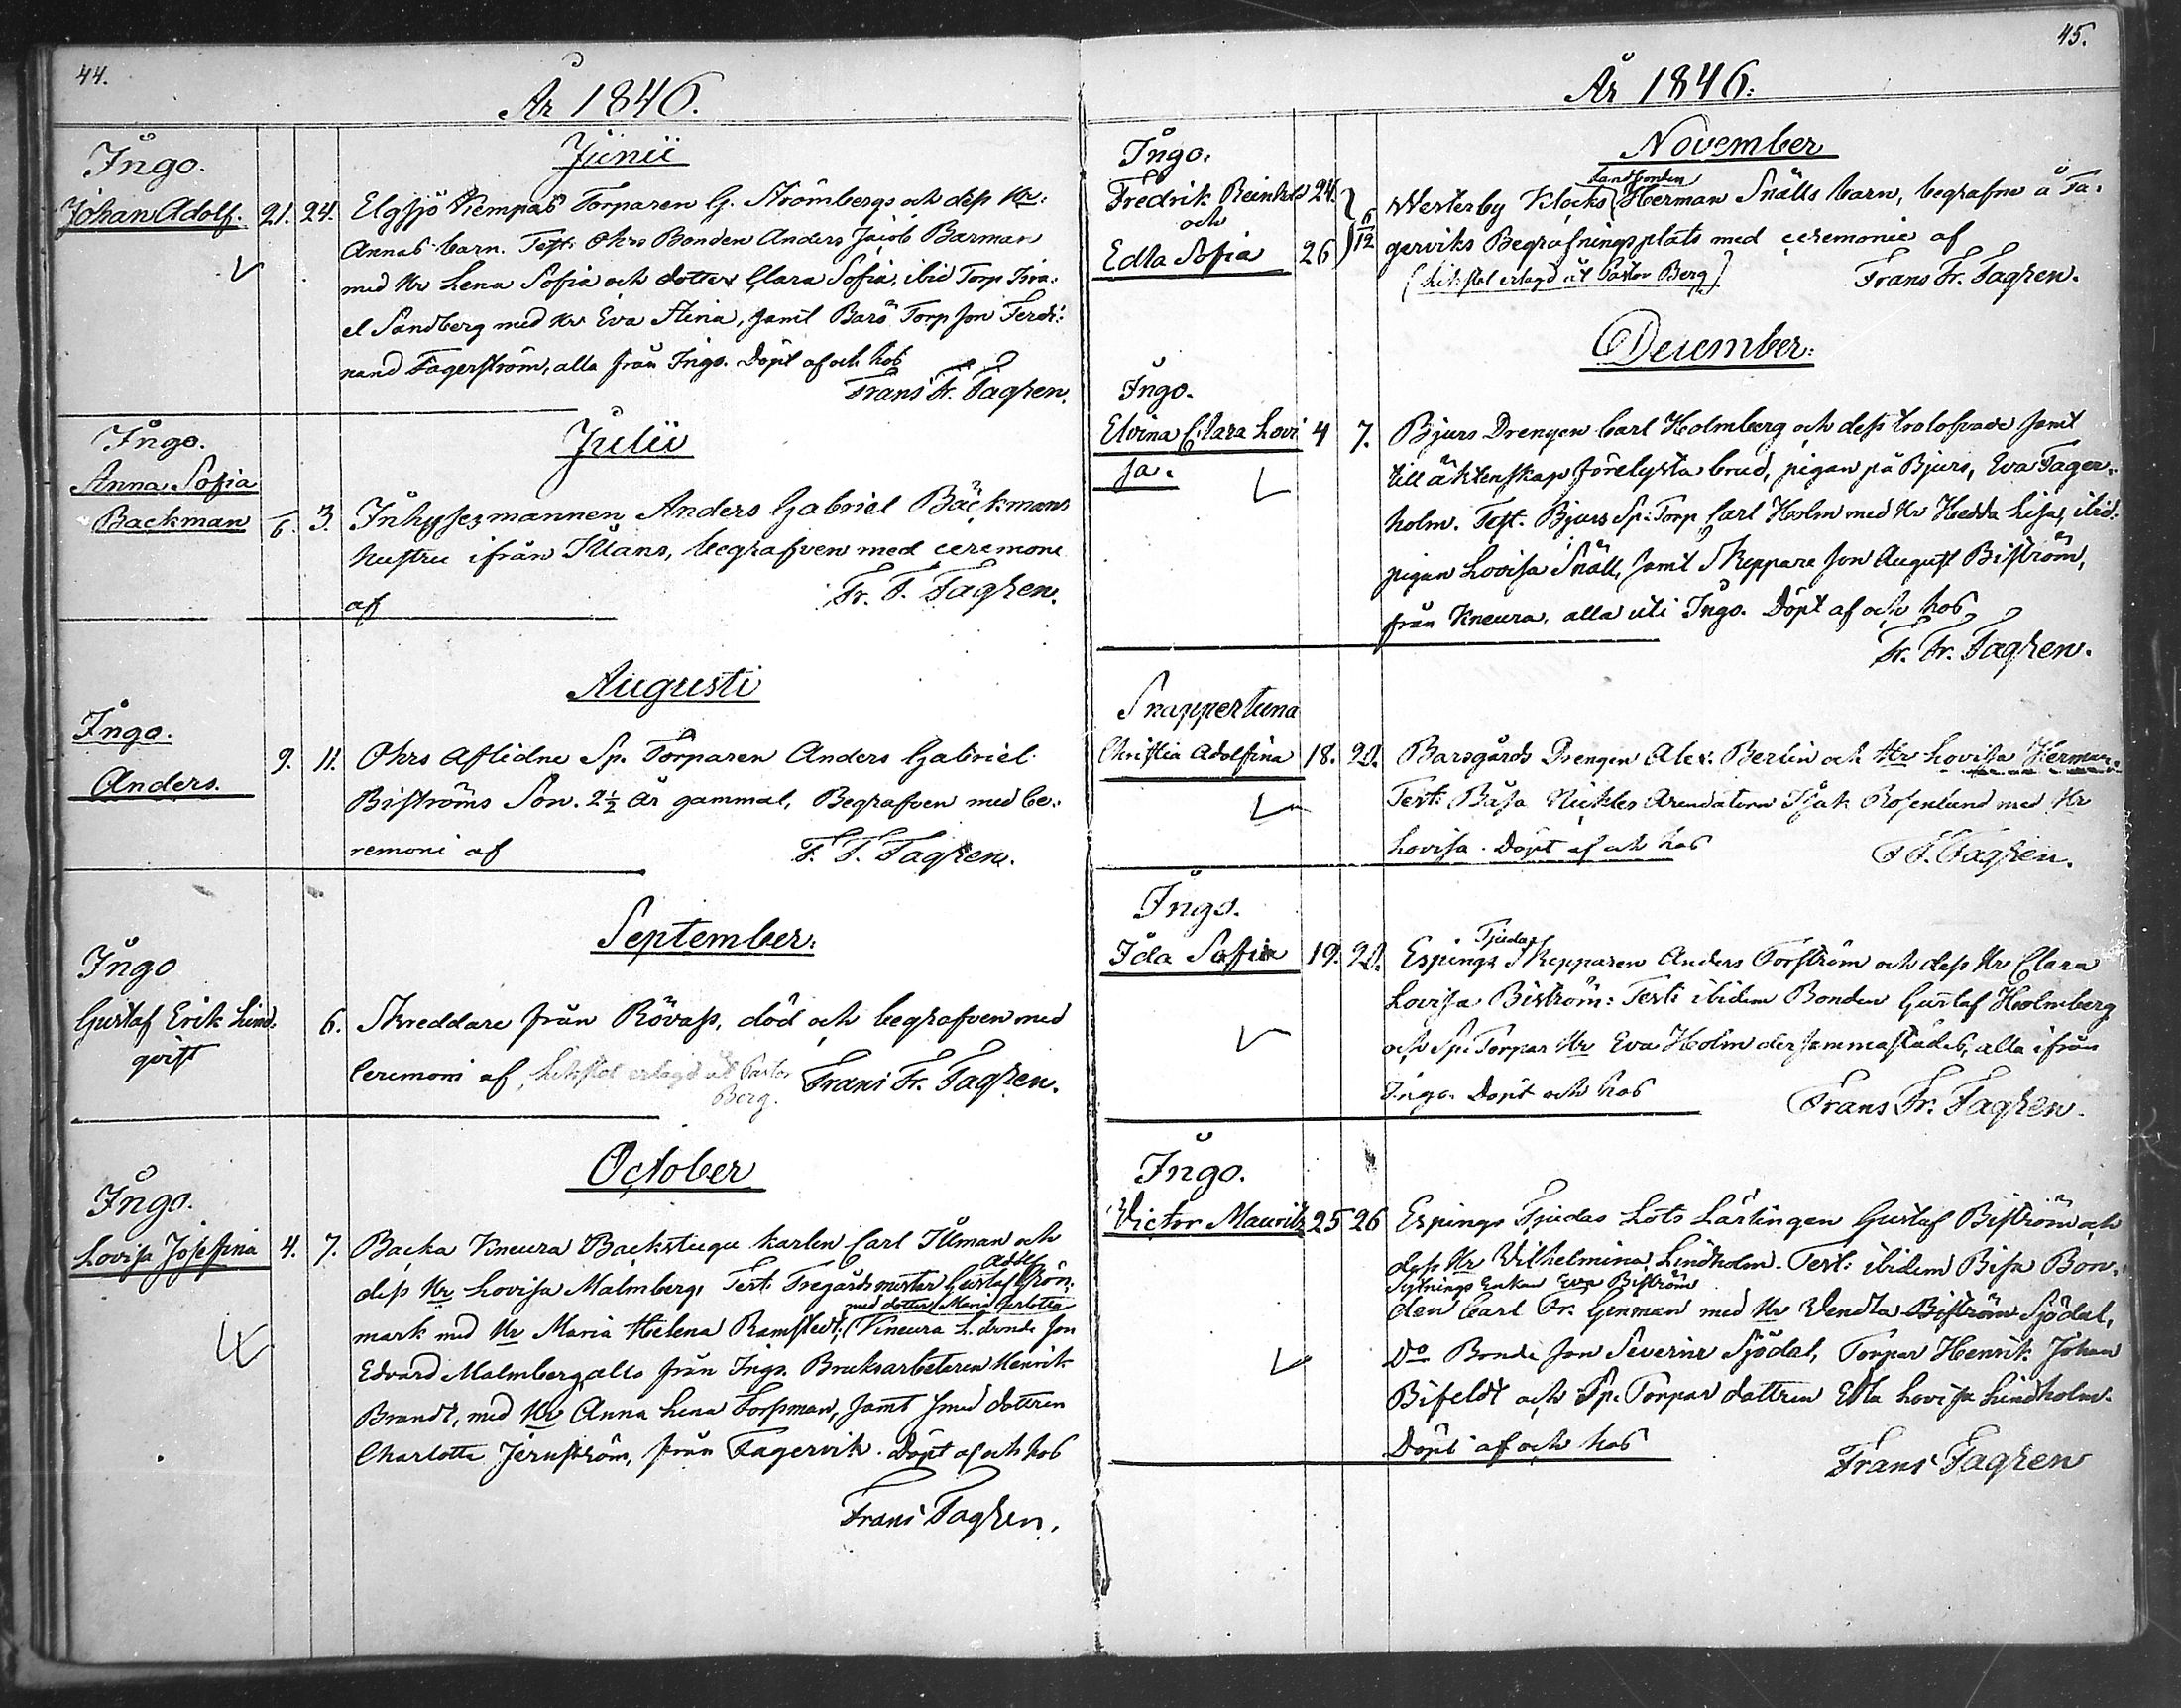 44.
År 1846.
Junii
Ingo.
Johan Adolf. 21. 24. Elgsjö Kempas Torparen G. Strömbergs och dess Hr:
Annas barn. Test: Ohrs Bonden Anders Jacob Barman
med Hr Lena Sofia och dotter Clara Sofia, ibid Torp Isra:
el Sandberg med Hr Eva Stina, samt Barö Torp son Ferdi:
nand Fagerström, alla från Ingo. Döpt af och hos
Frans Fr. Tagzen.
Julii
Ingo.
Anna Sofia
Backman 6. 3. Inhysesmannen Anders Gabriel Bäckmans
hustru ifrån Illans, begrafven med ceremoni
af Fr. F. Tagzen.
Augusti
Ingo.
Anders. 9. 11. Ohrs Aflidne Sp. Torparen Anders Gabriel
Biströms Son. 2½ år gammal, Begrafven med Ce:
remoni af F. F. Tagzen.
September:
Ingo
Gustaf Erik Lind: 6. Skreddare från Rövass, död och begrafven med
qvist
Ceremoni af, Likstol erlagd åt Pastor Frans Fr. Tagzen.
Berg.
October
Ingo.
Lovisa Josefina 4. 7. Backa Kneura Backstugu karlen Carl Illman och
dess Hr Lovisa Malmberg, Test: Tregårdsmästar Gustaf Adolf Grön:
med dotter Maria Carlotta
mark med Hr Maria Helena Ramstedt, Kneura L. Bonde son
Edvard Malmberg alla från Ingo. Bruksarbetaren Henrik
Brandt, med Hr Anna Lena Forssman, samt Smed dottren
Charlotta Jernström, från Fagervik. Döpt af och hos
Frans Tagzen.
45.
År 1846.
November
Ingo.
Fredrik Reinhold 24. Westerby Klocks Landbonden Herman Snälls barn, begrafne å Fa:
och 6/12
Edla Sofia 26 gerviks Begrafningsplats med ceremonie af
(Likstol erlagd åt Pastor Berg) Frans Fr. Tagzen.
December:
Ingo.
Elvina Clara Lovi 4 7. Bjurs Drengen Carl Holmberg och dess trolofvade samt
sa.
till äktenskap förelysta brud, pigan på Bjurs, Eva Fager:
holm. Test. Bjurs Sp: Torp Carl Holm med Hr Hedda Lisa, ibid.
pigan Lovisa Snäll, samt Skeppare son August Biström,
från Kneura, alla uti Ingo. Döpt af och hos
Fr. Fr. Tagzen.
Snappertuna
Christia Adolfina 18. 20. Barsgårds Drengen Alex. Berlin och Hr Lovisa Herman.
Test: Båsa Nickles Arendatorn Isak Rosenlund med Hr
Lovisa. Döpt af och hos F F. Tagzen.
Ingo.
Ida Sofia 19. 20. Espings Tjudas Skepparen Anders Forström och dess Hr Clara
Lovisa Biström: Test: ibidem Bonden Gustaf Holmberg
och Sp. Torpar Hr Eva Holm dersammastädes, alla ifrån
Ingo. Döpt och hos Frans Fr. Tagzen.
Ingo.
Victor Mauritz 25 26 Espings Tjudas Lots Lärlingen Gustaf Biström och
dess Hr Vilhelmina Lindholm. Test: ibidem Bisa Bon:
Sytnings Enkan Eva Biström
den Carl Fr. Genman med Hr Wendla Biström Sjödal,
Do Bonde son Severin Sjödal, Torpar Henrik Johan
Bifeldt och Sp. Torpar dottren Edla Lovisa Lindholm.
Döpt af och hos Frans Tagzen